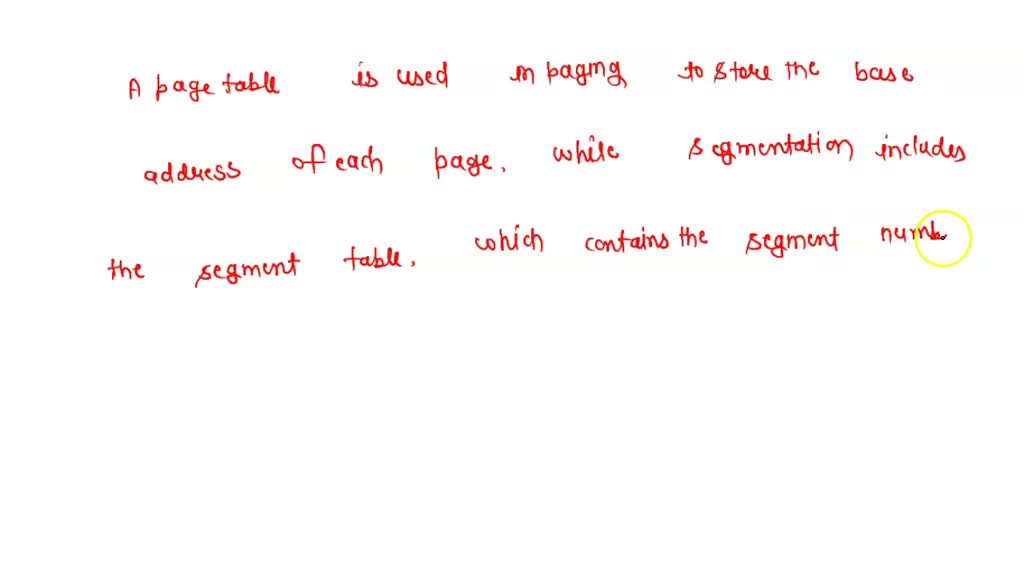 A page table is used in paging to store the base
address of each page, while segmentation includes
the segment table, which contains the segment numb